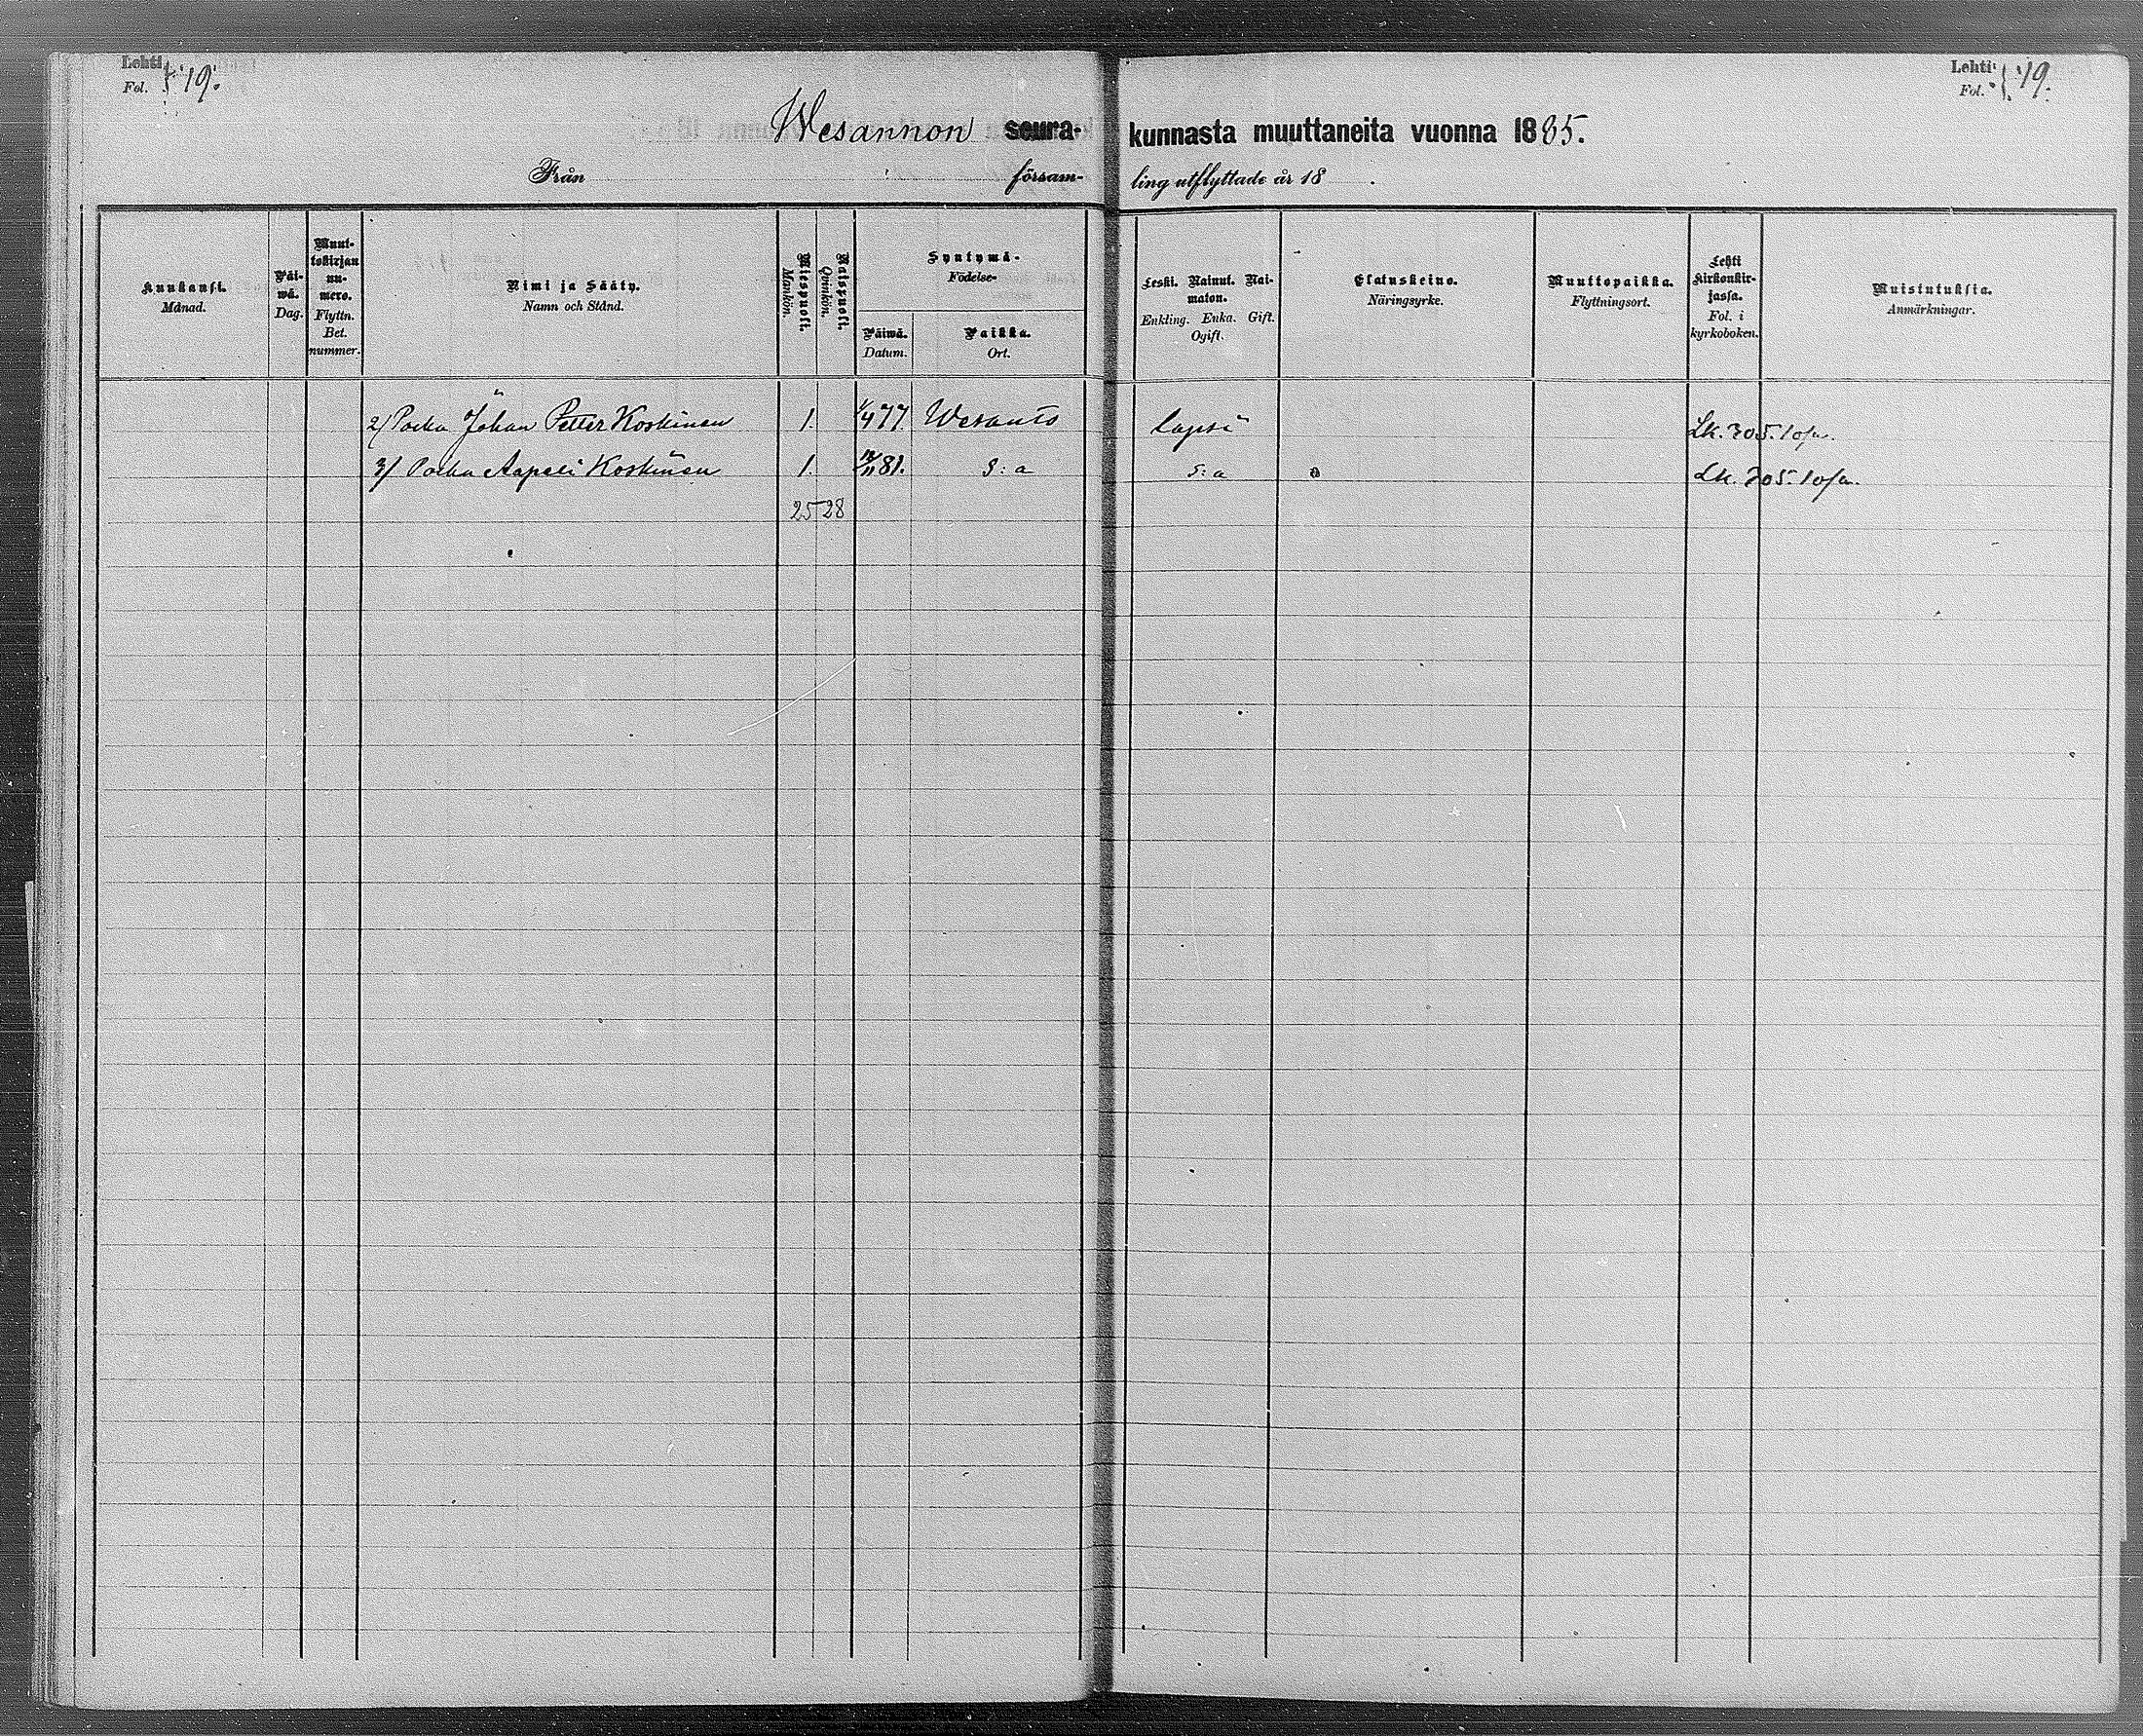 Lehti Fol. } 19.
Lehti Fol. } 19.
Wesannon seura- kunnasta muuttaneita vuonna 1885.
Från försam- ling utflyttade år 18 .
Kuukausi. Månad.
Päi- wä. Dag.
Muut- tokirjan nu- mero. Flyttn. Bet. nummer.
Nimi ja Sääty. Namn och Stånd.
Miespuoli. Mankön.
Naispuoli. Qvinkön.
Syntymä- Födelse-
Päiwä. Datum.
Paikka. Ort.
Leski. Nainut. Nai- maton. Enkling. Enka. Gift. Ogift.
Elatuskeino. Näringsyrke.
Muuttopaikka. Flyttningsort.
Lehti kirkonkir- jassa. Fol. i kyrkoboken.
Muistutuksia. Anmärkningar.
2/ Poika Johan Petter Koskinen 1. 1/4 77 Wesanto lapsi Lk. 305.
3/ Poika Aapeli Koskinen 1. 81. S: a S: a Lk. 305.
25 28